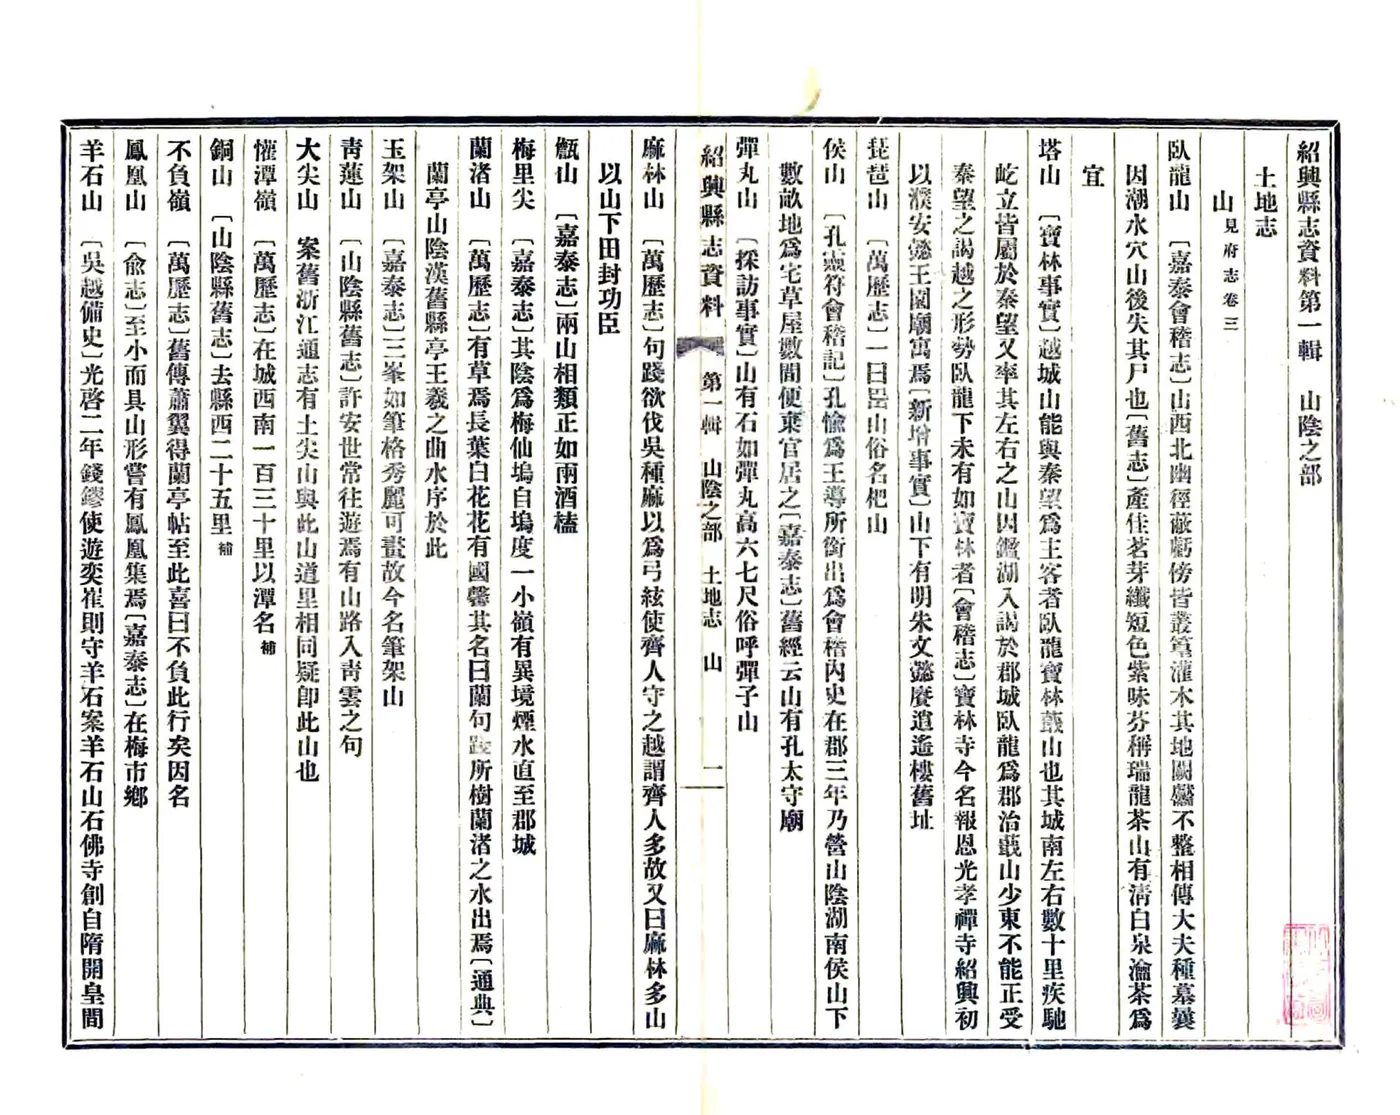 紹興縣志資料第一輯　山陰之部
土地志
山見府志卷三
臥龍山　〔嘉泰會稽志〕山西北幽徑蔽虧傍皆叢篁灌木其地闕齾不整相傳大夫種墓曩
因潮水穴山後失其尸也〔舊志〕產佳茗芽纖短色紫味芬稱瑞龍茶山有淸白泉瀹茶爲
宜
塔山　〔寶林事實〕越城山能與秦望爲主客者臥龍寶林蕺山也其城南左右數十里疾馳
屹立皆屬於秦望又率其左右之山因鑑湖入謁於郡城臥龍爲郡治蕺山少東不能正受
秦望之謁越之形勢臥龍下未有如寶林者〔會稽志〕寶林寺今名報恩光孝禪寺紹興初
以濮安懿王園廟寓焉〔新增事實〕山下有明朱文懿賡逍遙樓舊址
琵琶山　〔萬歷志〕一曰嵒山俗名杷山
侯山　〔孔靈符會稽記〕孔愉爲王導所銜出爲會稽內史在郡三年乃營山陰湖南侯山下
數畝地爲宅草屋數間便棄官居之〔嘉泰志〕舊經云山有孔太守廟
彈丸山　〔採訪事實〕山有石如彈丸高六七尺俗呼彈子山
紹興縣志資料　第一輯　山陰之部　土地志　山　一
麻林山　〔萬歷志〕句踐欲伐吳種麻以爲弓絃使齊人守之越謂齊人多故又曰麻林多山
以山下田封功臣
甑山　〔嘉泰志〕兩山相類正如兩酒榼
梅里尖　〔嘉泰志〕其陰爲梅仙塢自塢度一小嶺有異境煙水直至郡城
蘭渚山　〔萬歷志〕有草焉長葉白花花有國馨其名曰蘭句踐所樹蘭渚之水出焉〔通典〕
蘭亭山陰漢舊縣亭王羲之曲水序於此
玉架山　〔嘉泰志〕三峯如筆格秀麗可畫故今名筆架山
靑蓮山　〔山陰縣舊志〕許安世常往遊焉有山路入靑雲之句
大尖山　案舊浙江通志有土尖山與此山道里相同疑卽此山也
慛潭嶺　〔萬歷志〕在城西南一百三十里以潭名補
銅山　〔山陰縣舊志〕去縣西二十五里補
不負嶺　〔萬歷志〕舊傳蕭翼得蘭亭帖至此喜曰不負此行矣因名
鳳凰山　〔兪志〕至小而具山形嘗有鳳凰集焉〔嘉泰志〕在梅市鄕
羊石山　〔吳越備史〕光啓二年錢鏐使遊奕崔則守羊石案羊石山石佛寺創自隋開皇間